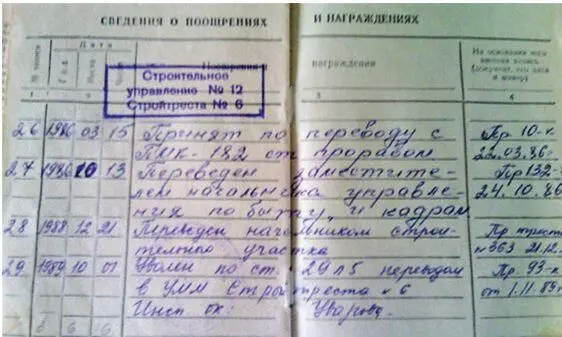 СВЕДЕНИЯ О ПООЩРЕНИЯХ И НАГРАЖДЕНИЯХ
Дата
На основании чего внесена запись (документ, его дата и номер)
№ записи Год Месяц Число награждения
1 3 4
Строительное
управление № 12
Стройтреста № 6
26 1986 03 15 Принят по переводу с Пр 10-к
ПМК-182 ст. прорабом 22.03.86г.
27 1986 10 13 Переведен заместите- Пр 132-к
лем начальника управле- 24.10.86
ния по быту и кадрам
28 1988 12 21 Переведен начальником строи- Пр треста
тельного участка №363 21.12.
29 1989 10 01 Уволен по ст. 29 п5 переводом Пр. 93-к
в УММ Стройтреста №6 от 1.11.89г
Инсп ок: Уварова